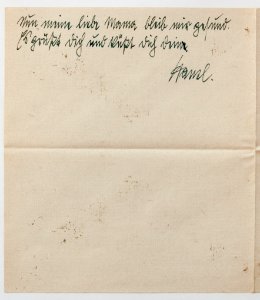 Nun meine liebe Mama bleib mir gesund.
Es grüßt Dich und küßt Dich Deine
Hansl.